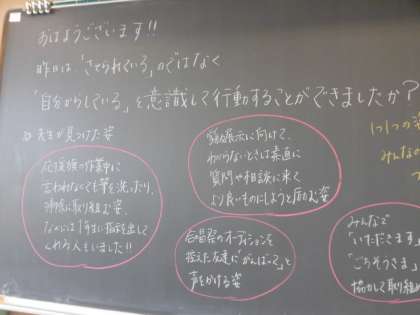 おはようございます!!
昨日は「させられている」のではなく
「自分からしている」を意識して行動することができましたか?
先生が見つけた姿
応援旗の作業中に
言われなくても筆を洗ったり、
掃除に取り組む姿。
なかには1年生に指示を出して
くれる人もいました!!
展示に向けて、
わからないときは素直に
質問や相談に来て
より良いものにしようと
姿
合唱祭のオーディションを
控えた友達に「がんばって」と
声をかける姿
1つ1つの姿
みんなの
みんなで
「いただきます」
「ごちそうさま」
協力して取り組